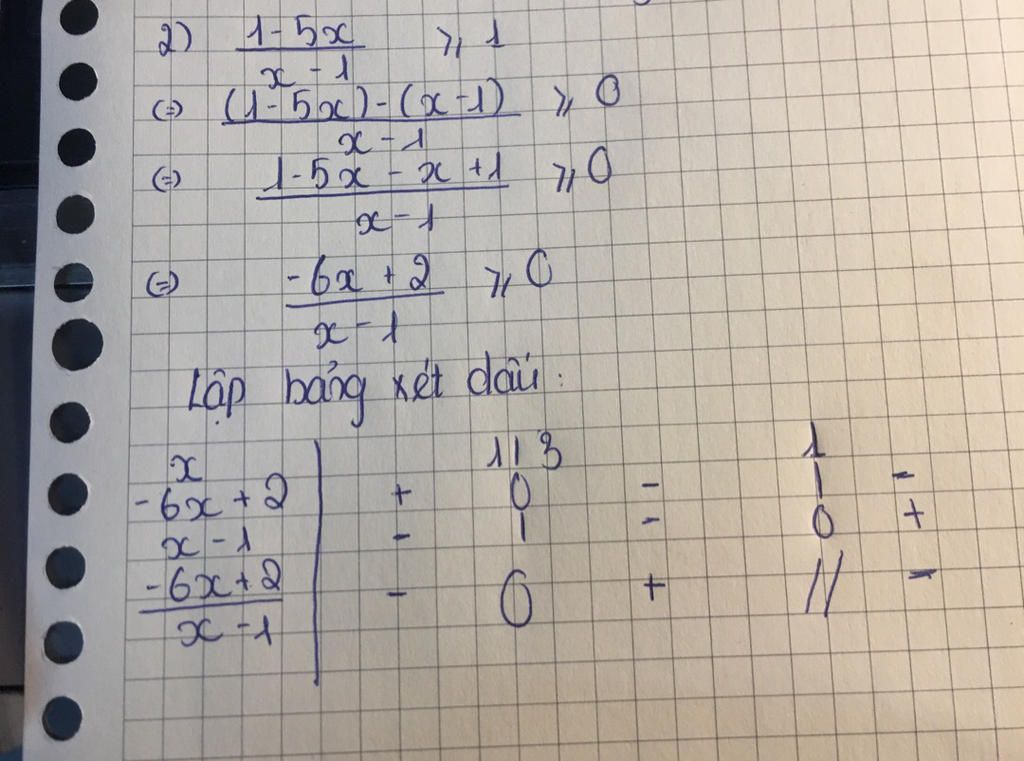 2) (1-5x)/(x-1) ⩾ 1
(=) ((1-5x)-(x-1))/(x-1) ⩾ 0
(=) (1-5x-x+1)/(x-1) ⩾ 0
(=) (-6x+2)/(x-1) ⩾ 0
Lập bảng xét dấu:
x | 1/3 1
-6x+2 | + 0 - | -
x-1 | - | - 0 +
(-6x+2)/(x-1) | - 0 + || -